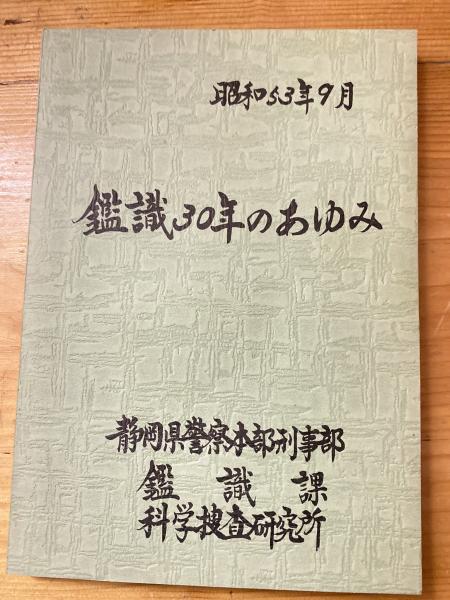 昭和53年9月
鑑識30年のあゆみ
静岡県警察本部刑事部
鑑識課
科学捜査研究所